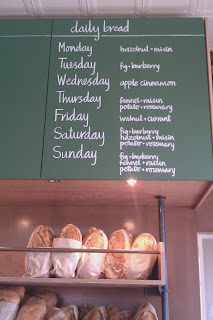 daily bread
Monday hazelnut + raisin
Tuesday fig + barberry
Wednesday apple cinnamon
Thursday fennel + raisin
potato + rosemary
Friday walnut + currant
Saturday fig + barberry
hazelnut + raisin
potato + rosemary
Sunday fig + barberry
fennel + raisin
potato + rosemary